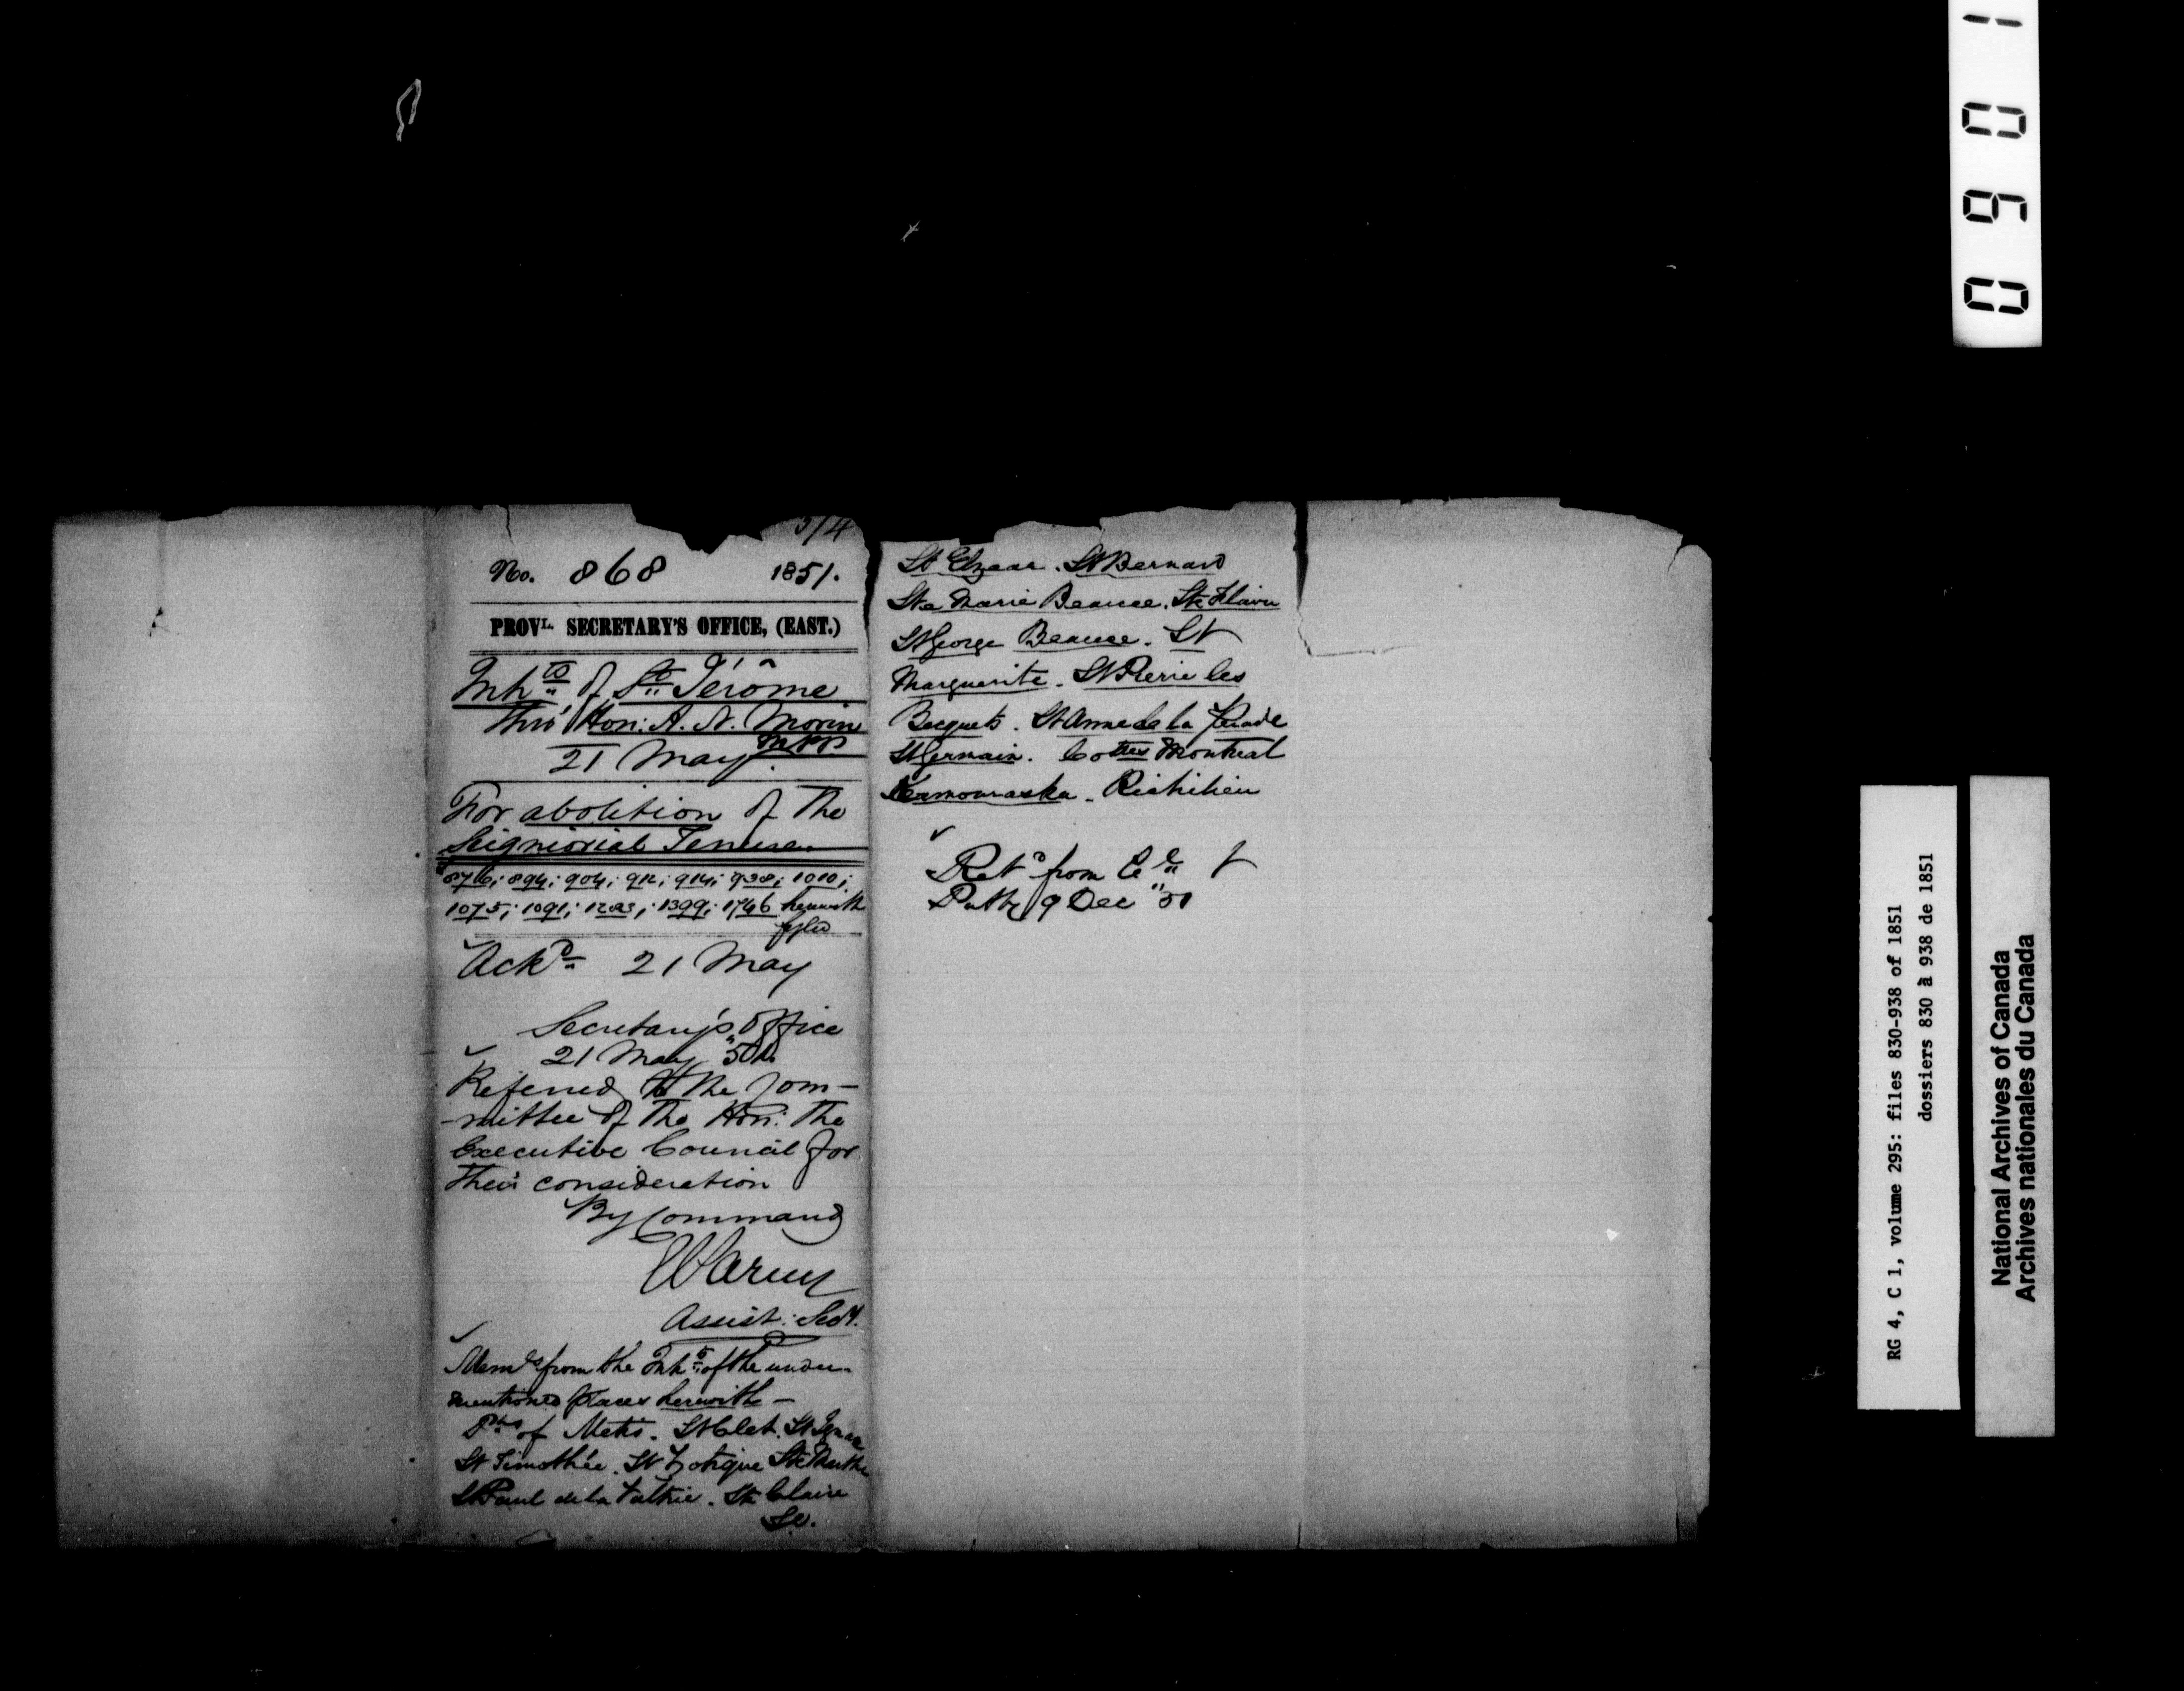 5/4
No. 868 1851.
PROVL. SECRETARY'S OFFICE, (EAST.)
Inhts of St Jérôme
thro' Hon: A. N. Morin
MPP
21 May.
For abolition of the
Seigniorial Tenure.
876; 894; 904; 912; 914; 938; 1010;
1075; 1091; 1283; 1399; 1746 herewith
Ackd 21 May
Secretary's Office
21 May
Referred to the Com-
-mittee of the Hon: the
Executive Council for
their consideration
By Command
Assist: Secy.
Memls from the Inhts of the under-
mentioned places herewith —
Phs of Metis. St Clet. St Ignace
St Timothée. St Zotique Ste Marthe
St Paul de la Valtrie. Ste Claire
St Elzear. St Bernard
Ste Marie Beauce. Ste Flavie
St George Beauce. St
Marguerite. St Pierre les
Becquets. St Anne de la Perade
St Germain. Cotties Montreal
Kamouraska. Richilieu
Retd from
9 Dec "51
0601
RG 4, C 1, volume 295: files 830-938 of 1851
dossiers 830 à 938 de 1851
National Archives of Canada
Archives nationales du Canada